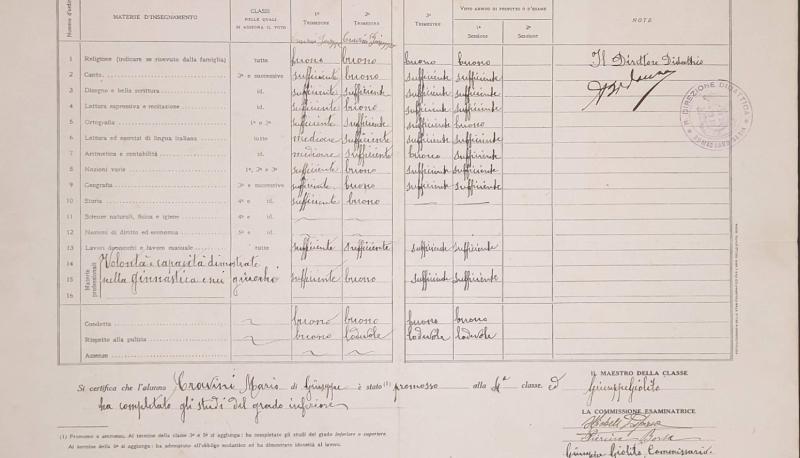 Numero d'ordine MATERIE D'INSEGNAMENTO CLASSI NELLE QUALI SI ASSEGNA IL VOTO 1° Trimestre 2° Trimestre 3° Trimestre VOTO ANNUO DI PROFITTO O D'ESAME 1ª Sessione 2ª Sessione NOTE
1 Religione (indicare se ricevuto dalla famiglia) tutte buono buono buono buono Il Direttore Didattico
2 Canto 3ª e successive sufficiente buono sufficiente sufficiente
3 Disegno e bella scrittura id. sufficiente sufficiente sufficiente sufficiente
4 Lettura espressiva e recitazione id. sufficiente buono sufficiente sufficiente
R. DIREZIONE DIDATTICA
5 Ortografia 1ª e 2ª sufficiente sufficiente sufficiente buono
6 Lettura ed esercizi di lingua italiana tutte mediocre sufficiente sufficiente sufficiente
7 Aritmetica e contabilità id. mediocre sufficiente buono sufficiente
8 Nozioni varie 1ª, 2ª e 3ª sufficiente buono sufficiente sufficiente
9 Geografia 3ª e successive sufficiente buono sufficiente sufficiente
10 Storia 4ª e id. sufficiente buono
11 Scienze naturali, fisica e igiene 4ª e id.
12 Nozioni di diritto ed economia 5ª e id.
13 Lavori donneschi e lavoro manuale tutte sufficiente sufficiente sufficiente sufficiente
14 Volontà e capacità dimostrate
15 Materie professionali nella ginnastica e nei giuochi sufficiente buono sufficiente sufficiente
16
Condotta buono buono buono buono
Rispetto alla pulizia buono lodevole lodevole lodevole
Assenze
Si certifica che l'alunno Crovini Mario di Giuseppe è stato (1) promosso alla 4ª classe. ed
ha completato gli studi del grado inferiore
IL MAESTRO DELLA CLASSE
Giuseppe Giolito
LA COMMISSIONE ESAMINATRICE
Giuseppe Giolito, Commissario.
(1) Promosso o ammesso. Al termine della classe 3ª e 5ª si aggiunga: ha completato gli studi del grado inferiore o superiore.
Al termine della 8ª si aggiunga: ha adempiuto all'obbligo scolastico ed ha dimostrato idoneità al lavoro.